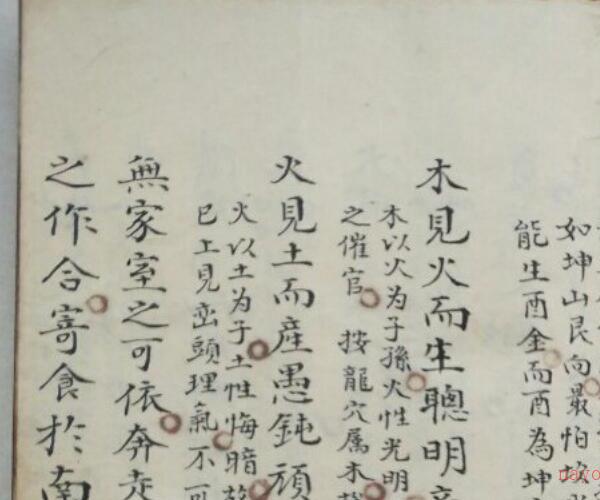 如坤山艮向最怕坡
能生酉金而酉為坤
木見火而生聰明
木以火为子孫火性光明
之催官 按龍穴属木
火見土而產愚鈍頑
火以土为子土性悔暗故
已上見峦頭理氣不可
無家室之可依奔走
之作合寄食於南